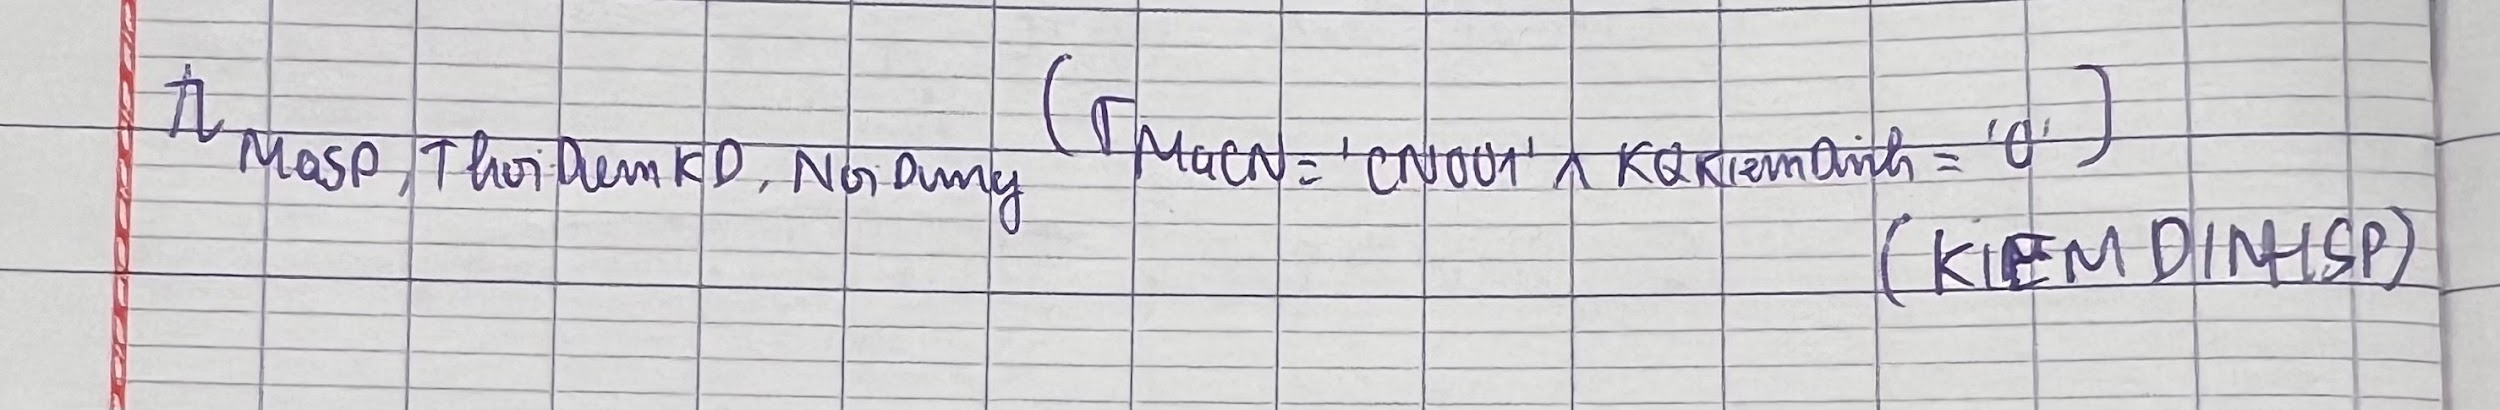 π MaSP, ThoiDiemKD, NoiDung (σ MaCN = 'CN001' ∧ KQKiemDinh = '0')
(KIEMDINHSP)